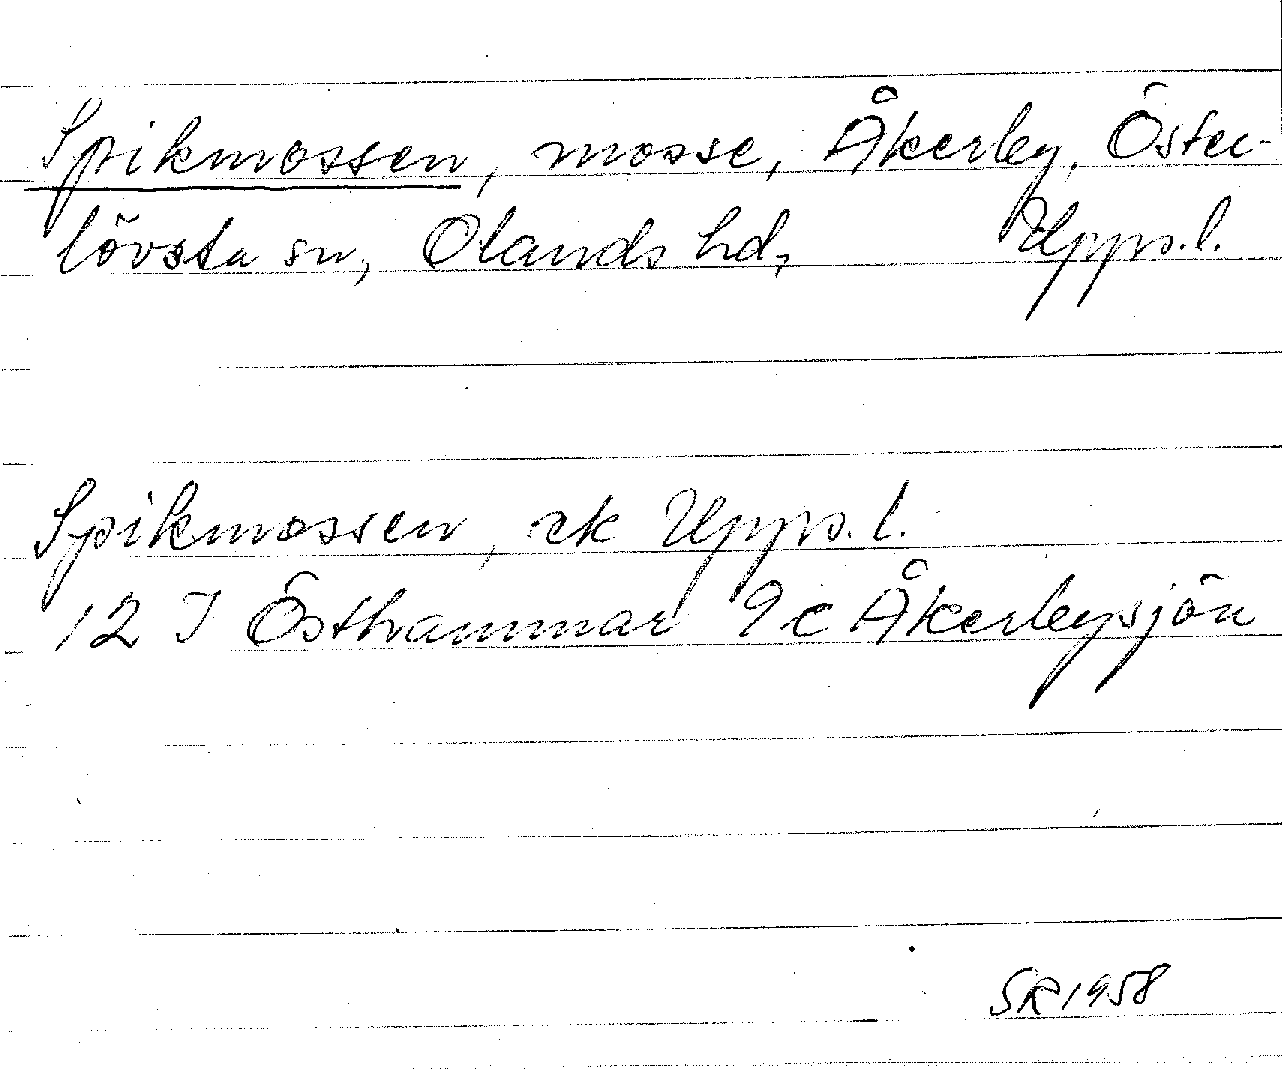 Spikmossen, mosse, Åkerby, Öster-
lövsta sn, Olands hd, Upps.l.
Spikmossen, ek Upps.l.
12 I Östhammar 9c Åkerbysjön
SR 1958